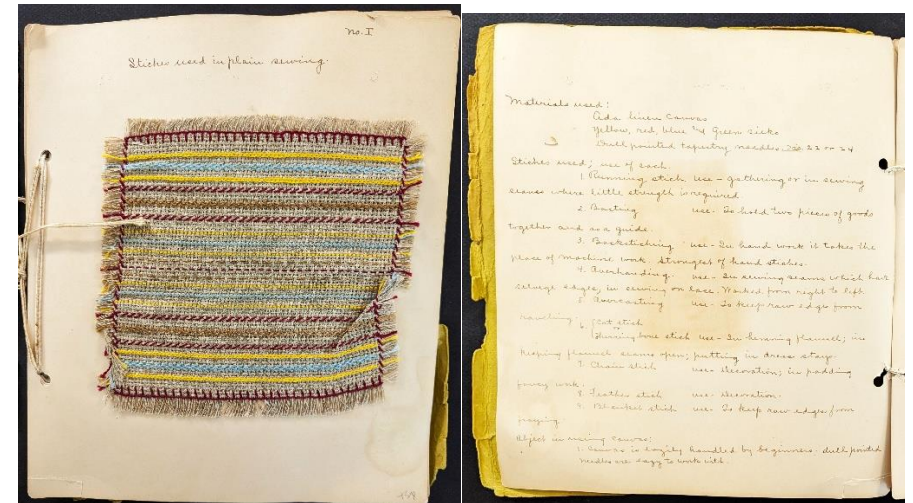 No. I
Stiches used in plain sewing.
Materials used:
Ada linen canvas
Yellow, red, blue and Green silks
Dull pointed tapestry needles. 22 or 24
Stiches used; use of each.
1. Running stich use - gathering or in sewing
seams where little strength is required
2. Basting use - To hold two pieces of goods
together and as a guide.
3. Backstiching use - In hand work it takes the
place of machine work. Strongest of hand stiches.
4. Overhanding. use - In sewing seams which have
selvage edges, in sewing on lace. Worked from right to left.
5. Overcasting use - To keep raw edge from
raveling.
6. Cat stich
or
Herring bone stich use - In hemming flannel; in
keeping flannel seams open; putting in dress stays.
7. Chain stich use - Decoration; in padding
fancy work.
8. Feather stich use - Decoration.
9. Blanket stich use - To keep raw edges from
fraying.
Object in using canvas:
1. Canvas is easily handled by beginners. dull pointed
needles are easy to work with.